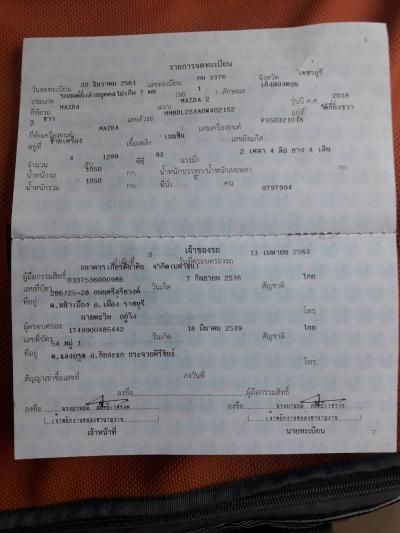 6
รายการจดทะเบียน
วันจดทะเบียน 20 ธันวาคม 2561 เลขทะเบียน กน 3376 จังหวัด เพชรบุรี
ประเภท รถยนต์นั่งส่วนบุคคลไม่เกิน 7 คน (รย 1) ลักษณะ เก๋งสองตอน
ยี่ห้อรถ MAZDA แบบ MAZDA 2 รุ่นปี ค.ศ. 2018
สี ขาว เลขตัวรถ MM8DL2S3A0W402152 อยู่ที่
ยี่ห้อเครื่องยนต์ MAZDA เลขเครื่องยนต์ P350321018
อยู่ที่ ซ้ายเครื่อง เชื้อเพลิง เบนซิน เลขถังแก๊ส
จำนวน 4 สูบ 1299 ซีซี 93 แรงม้า 2 เพลา 4 ล้อ ยาง 4 เส้น
น้ำหนักรถ 1050 กก. น้ำหนักบรรทุก/น้ำหนักลงเพลา กก.
น้ำหนักรวม 1050 กก. ที่นั่ง คน 9797994
เจ้าของรถ
ลำดับที่ 2 วันที่ครอบครองรถ 13 เมษายน 2563
ผู้ถือกรรมสิทธิ์ ธนาคารเกียรตินาคิน จำกัด(มหาชน)
เลขที่บัตร 0107536000986 วันเกิด 7 กันยายน 2536 สัญชาติ ไทย
ที่อยู่ 286/25-28 ถนนศรีสุริยวงศ์
ต.หน้าเมือง อ.เมือง ราชบุรี โทร.
ผู้ครอบครอง
เลขที่บัตร 1749900485442 วันเกิด 18 มีนาคม 2539 สัญชาติ ไทย
ที่อยู่ หมู่ 1
ประจวบคีรีขันธ์ โทร.
สัญญาเช่าซื้อเลขที่ ลงวันที่
ลงชื่อ ผู้ถือกรรมสิทธิ์
ลงชื่อ ลงชื่อ
เจ้าหน้าที่ นายทะเบียน
7